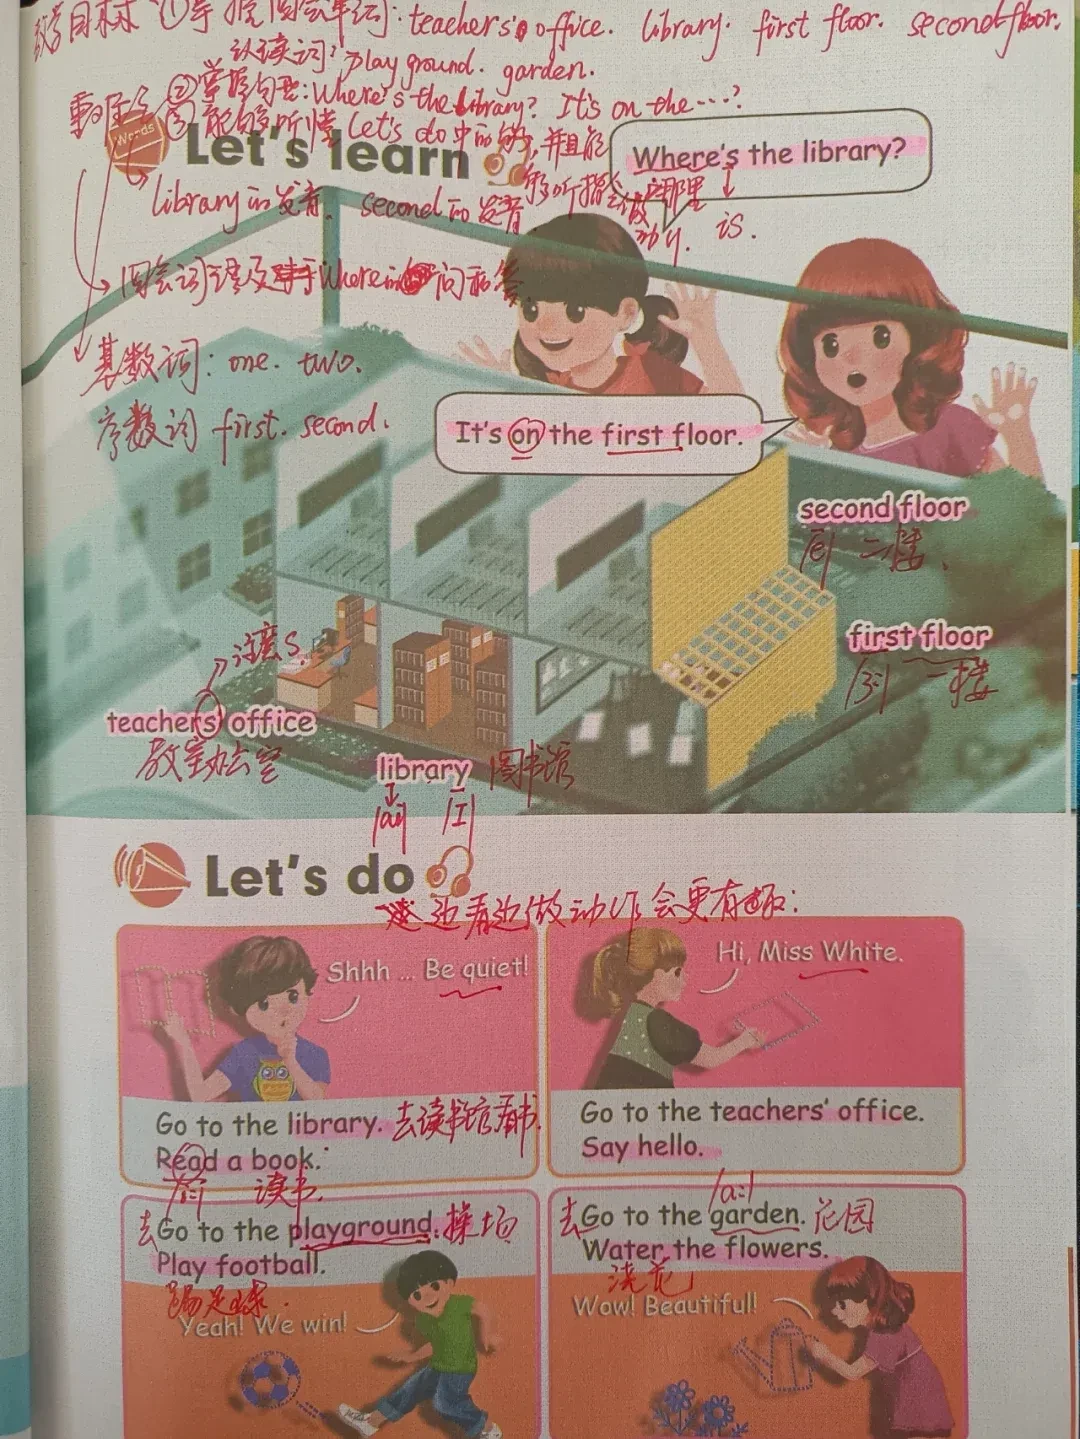 教学目标 ① 掌握图会单词: teachers' office. library. first floor. second floor.
认读词: playground. garden.
② 掌握句型: Where's the library? It's on the ...?
③ 能够听懂 Let's do 中的 并且能
够听指令做
Words
Let's learn
Where's the library?
在哪里
is.
library的发音. second的发音
图会词语及 Where的 问和答
基数词: one. two.
序数词 first. second.
It's on the first floor.
second floor
/e/ 二楼
first floor
/ɜ:/ 一楼
注意s.
teachers' office
教室办公室
library 图书馆
/aɪ/ /ɪ/
Let's do
边看边做动作会更有趣:
Shhh ... Be quiet!
Hi, Miss White.
Go to the library. 去读书馆看书.
Read a book.
/i:/ 读书.
Go to the teachers' office.
Say hello.
去Go to the playground. 操场
Play football.
踢足球.
Yeah! We win!
/a:/
去Go to the garden. 花园
Water the flowers.
浇花
Wow! Beautiful!